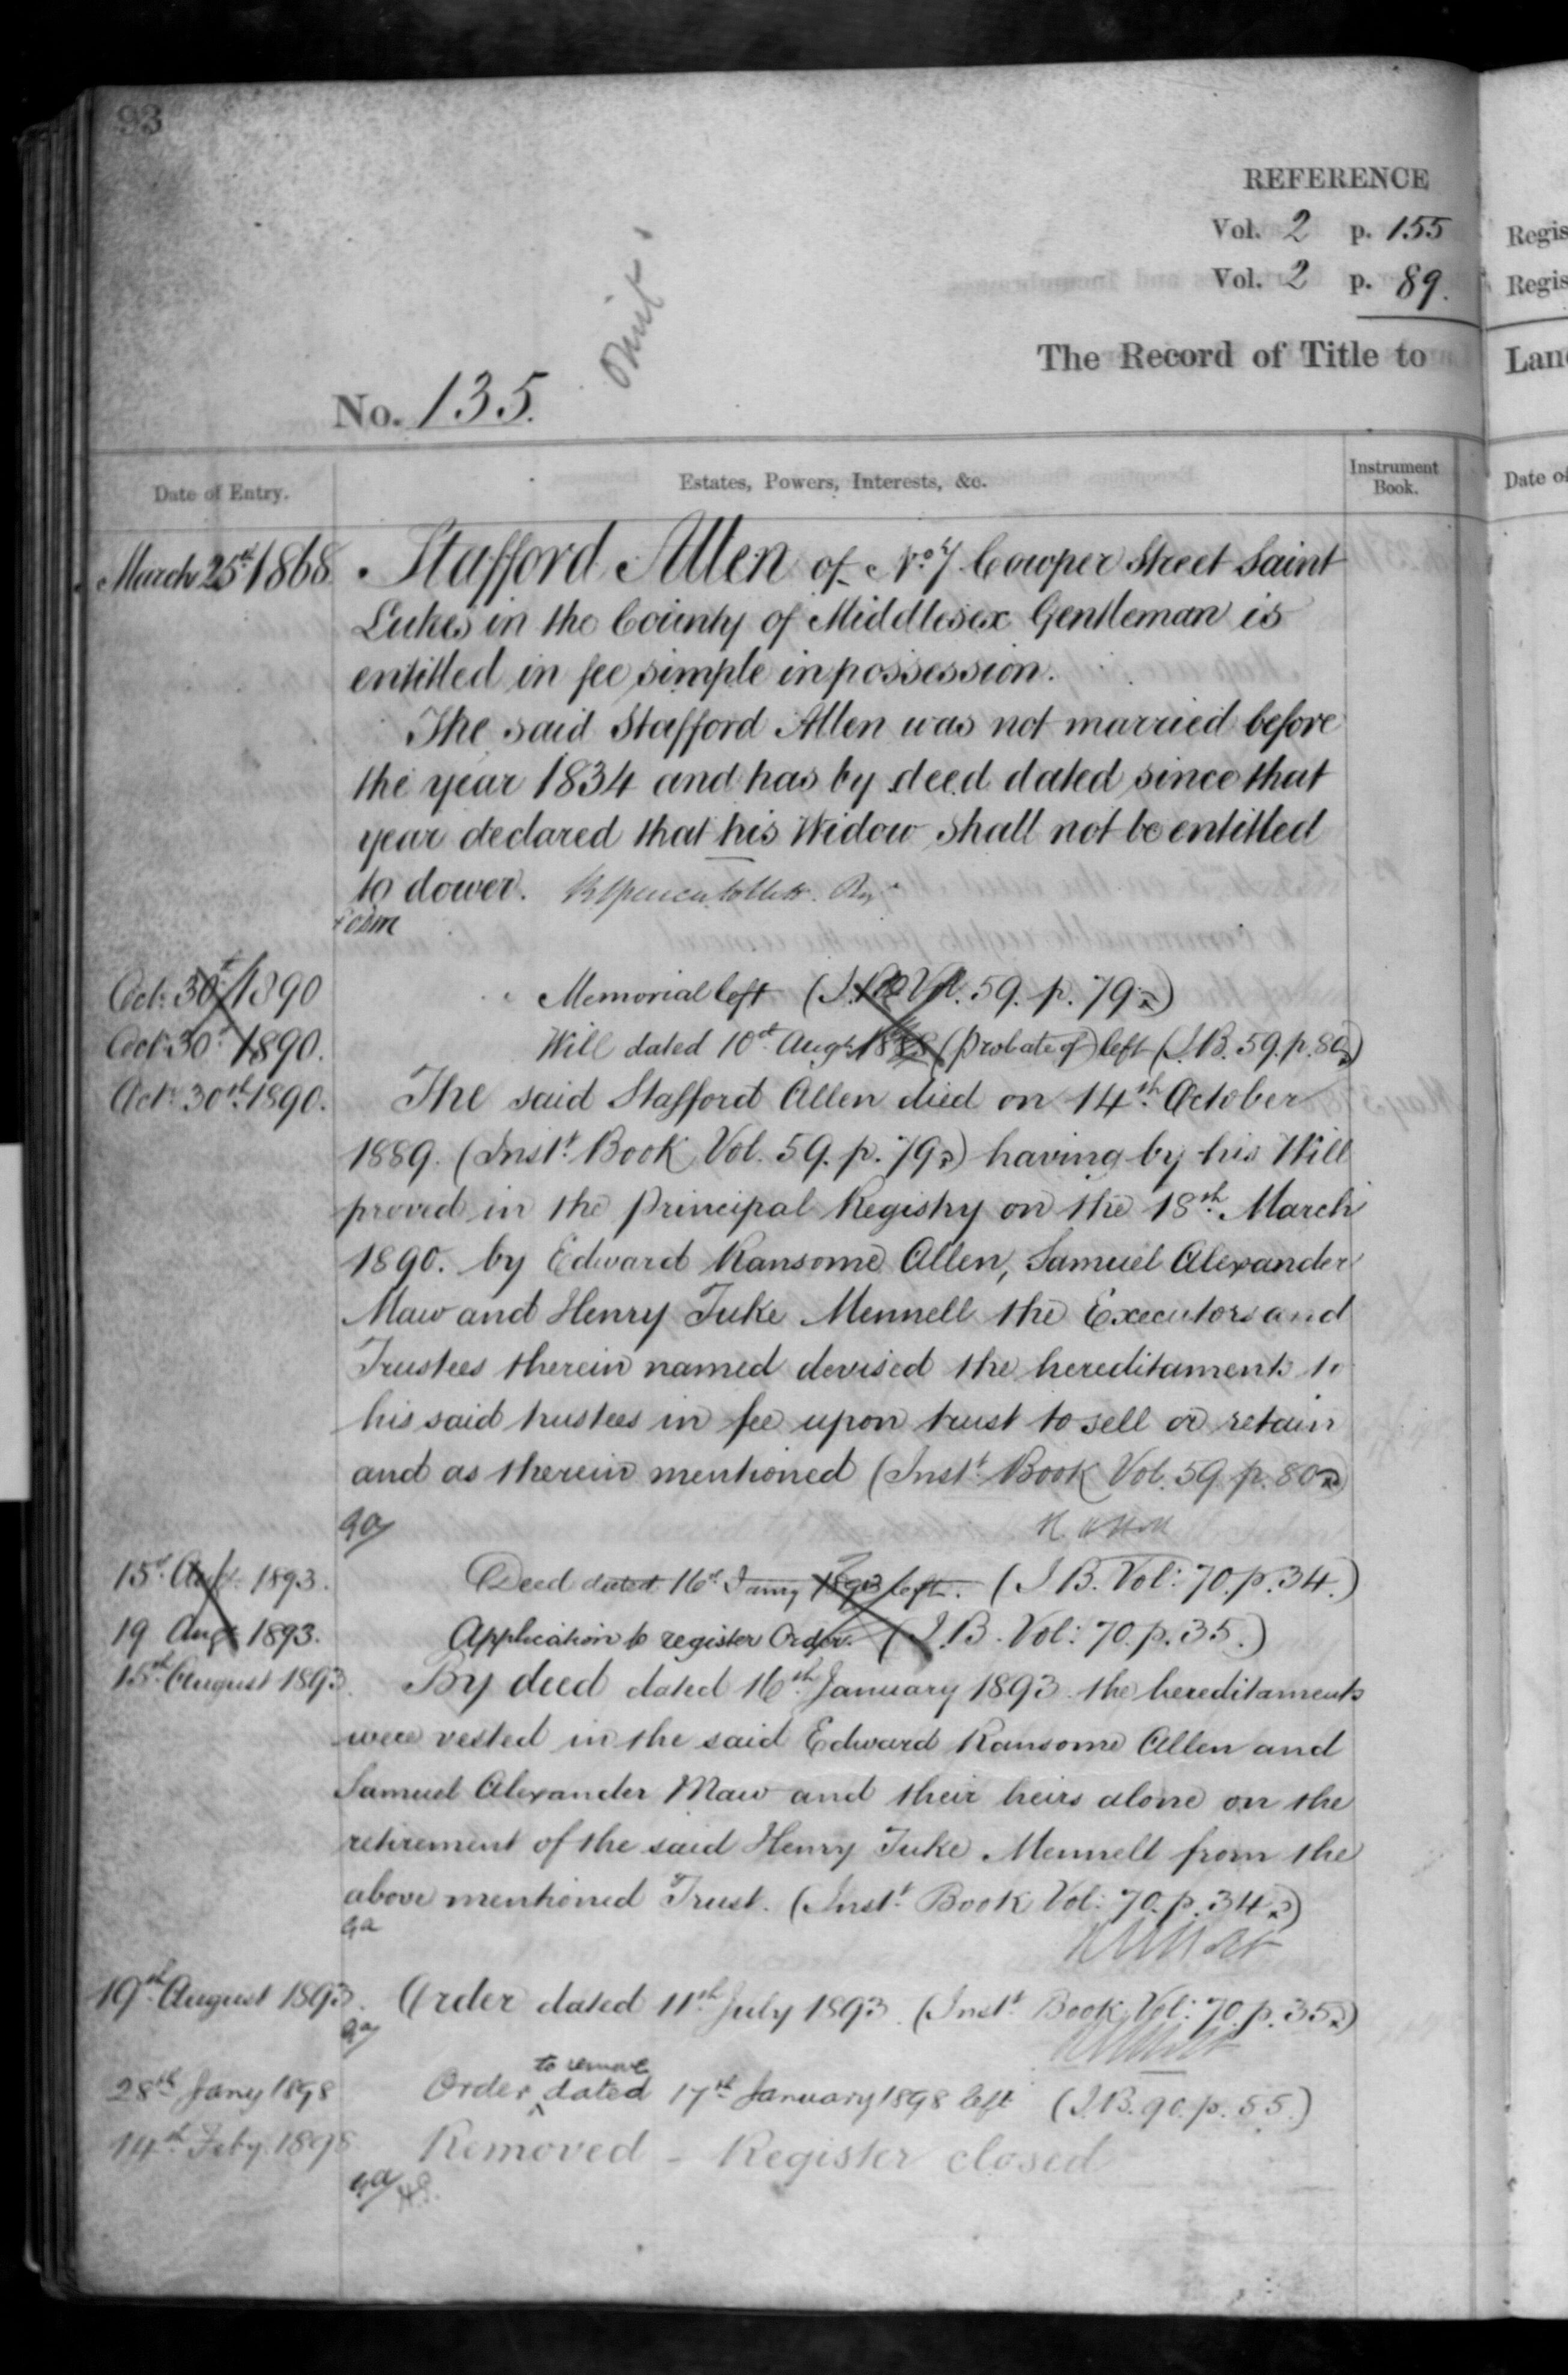 93
REFERENCE
Vol. 2 p. 155
Vol. 2 p. 89.
The Record of Title to
omit
No. 135.
Date of Entry.
Estates, Powers, Interests, &c.
Instrument Book.
March 25th 1868. Stafford Allen of No. 7 Cowper Street Saint
Lukes in the County of Middlesex Gentleman is
entitled in fee simple in possession.
The said Stafford Allen was not married before
the year 1834 and has by deed dated since that
year declared that his Widow shall not be entitled
to dower.
Oct. 30th 1890 Memorial left (I.B. Vol. 59. p. 79.)
Oct. 30th 1890. Will dated 10th Augt. 1888 (Probate of) left (I.B. 59. p. 80)
Oct. 30th 1890. The said Stafford Allen died on 14th October
1889. (Inst. Book Vol. 59. p. 79) having by his Will
proved in the Principal Registry on the 18th March
1890. by Edward Ransome Allen, Samuel Alexander
Maw and Henry Tuke Mennell the Executors and
Trustees therein named devised the hereditaments to
his said trustees in fee upon trust to sell or retain
and as therein mentioned (Inst. Book Vol. 59 p. 80)
15th Augt. 1893. Deed dated 16th Jany 1893 left. (I.B. Vol: 70. p. 34.)
19 Augt. 1893. Application to register Order. (I.B. Vol: 70. p. 35.)
15th August 1893. By deed dated 16th January 1893 the hereditaments
were vested in the said Edward Ransome Allen and
Samuel Alexander Maw and their heirs alone on the
retirement of the said Henry Tuke Mennell from the
above mentioned Trust. (Inst. Book Vol: 70. p. 34)
19th August 1893. Order dated 11th July 1893. (Inst. Book Vol: 70. p. 35)
to remove
28th Jany 1898 Order dated 17th January 1898 left (I.B. 90. p. 55.)
14th Feby. 1898 Removed - Register closed
Regis
Regis
Lan
Date of